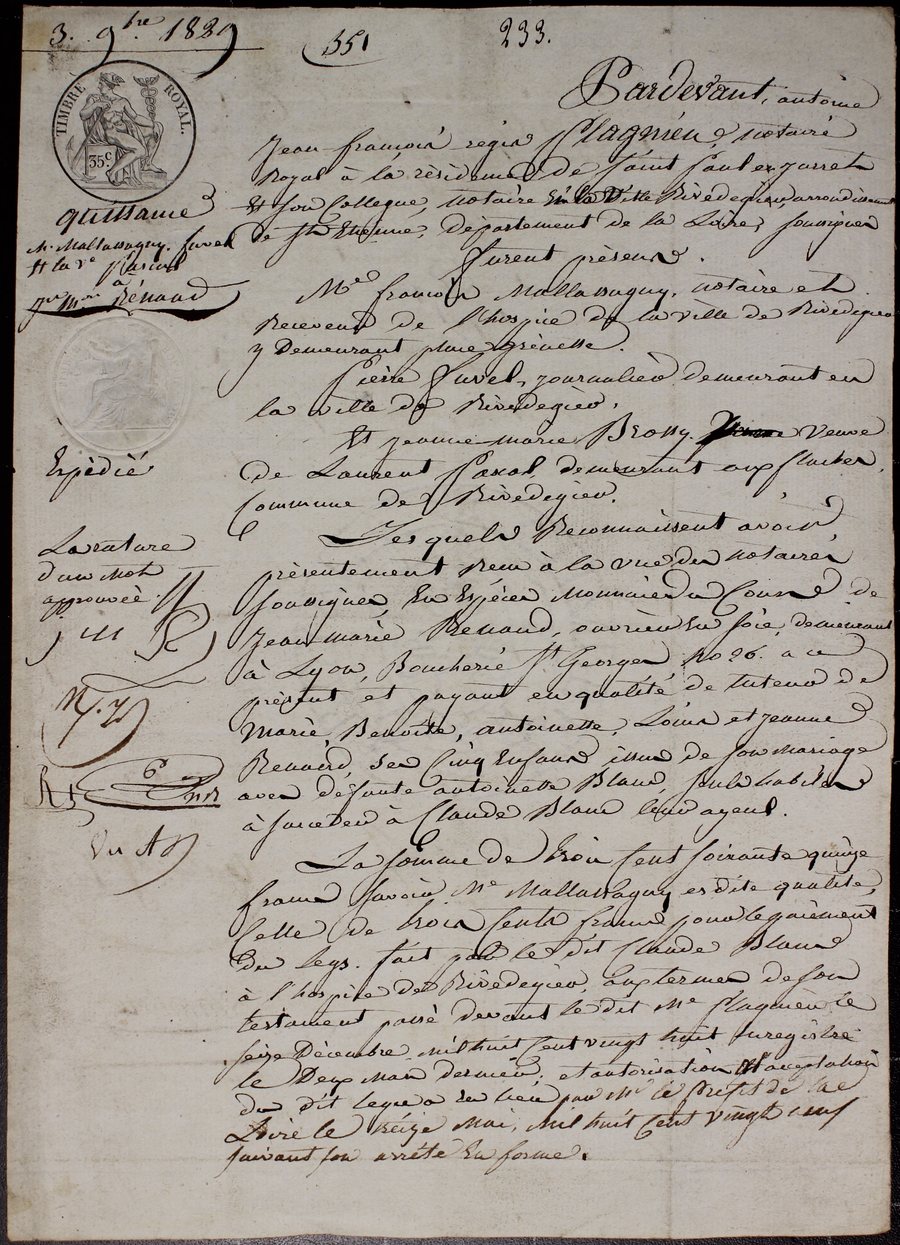 3. 9bre 1829
551
233.
TIMBRE ROYAL.
35 c.
quittance
Mr. Mallassagny, furel
Et la ve pascal
à
jn mie Rénaud
Expédié
La rature
d'un Mot
approuvée
Pardevant, antoine
Jean françois régis flagnieu, notaire
Royal à la résidence de saint paul en jarret
Et son Collegue, notaire En la Ville Rivedegier, arrondissement
de st Etienne, département de la Loire, soussignés
furent présens.
Me françois Mallassagny, notaire et
Receveur de l'hospice de la ville de Rivedegier
y Demeurant place grenette.
Pierre furel, journalier demeurant en
la ville de Rivedegier.
Et jeanne-marie Brossy Veuve
de Laurent pascal, demeurant aux flaches,
Commune de Rivedegier.
Lesquels Reconnaissent avoir
présentement Recu à la vue des notaires
soussignés, En Espéces Monnaie du Cours de
Jean marie Renaud, ouvrier En soie, demeurant
à Lyon, Boucherie St Georges No 26. a ce
présent et payant en qualité de tuteur de
Marie Benoite, antoinette, Louis et jeanne
Renaud, ses Cinq Enfans issus de son mariage
avec défunte antoinette Blanc, seuls habiles
à succeder à Claude Blanc leur ayeul.
La somme de trois Cent soixante quinze
francs savoir Me Mallassagny es dite qualité,
Celle de trois Cents francs pour le paiement
du legs fait par le dit Claude Blanc
à l'hospice de Rivedegier, aux termes de son
testament passé devant le dit Me flagnieu le
seize Décembre mil huit Cent vingt huit enregistré
le Deux Mars dernier; et autorisation Et acceptation
du dit legs a eu lieu par Mr le préfet de la
Loire le treize Mai, Mil huit Cent vingt neuf
suivant son arrêté En forme.